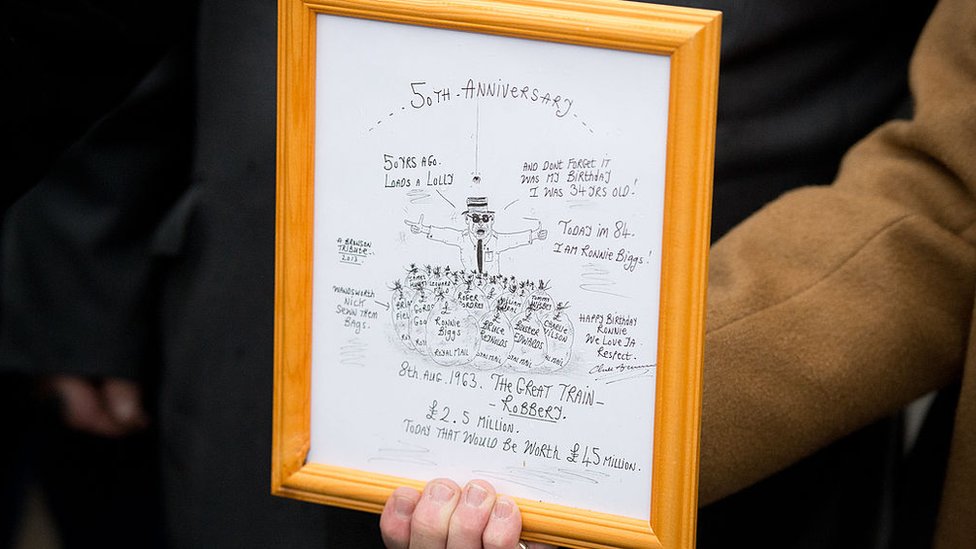 50TH ANNIVERSARY
50YRS AGO.
LOADS A LOLLY
AND DONT FORGET IT
WAS MY BIRTHDAY
I WAS 34YRS OLD!
TODAY IM 84.
I AM RONNIE BIGGS!
A BRONSON
TRIBUTE
2013
WANDSWORTH
NICK
SEWN THEM
BAGS.
ROGER
CORDREY
WILLIAM
£
RONNIE
BIGGS
ROYAL MAIL
£
BRUCE
REYNOLDS
£
BUSTER
EDWARDS
£
CHARLIE
WILSON
HAPPY BIRTHDAY
RONNIE
WE LOVE YA
RESPECT.
8TH. AUG. 1963. THE GREAT TRAIN-
-ROBBERY.
£2.5 MILLION.
TODAY THAT WOULD BE WORTH £45 MILLION.